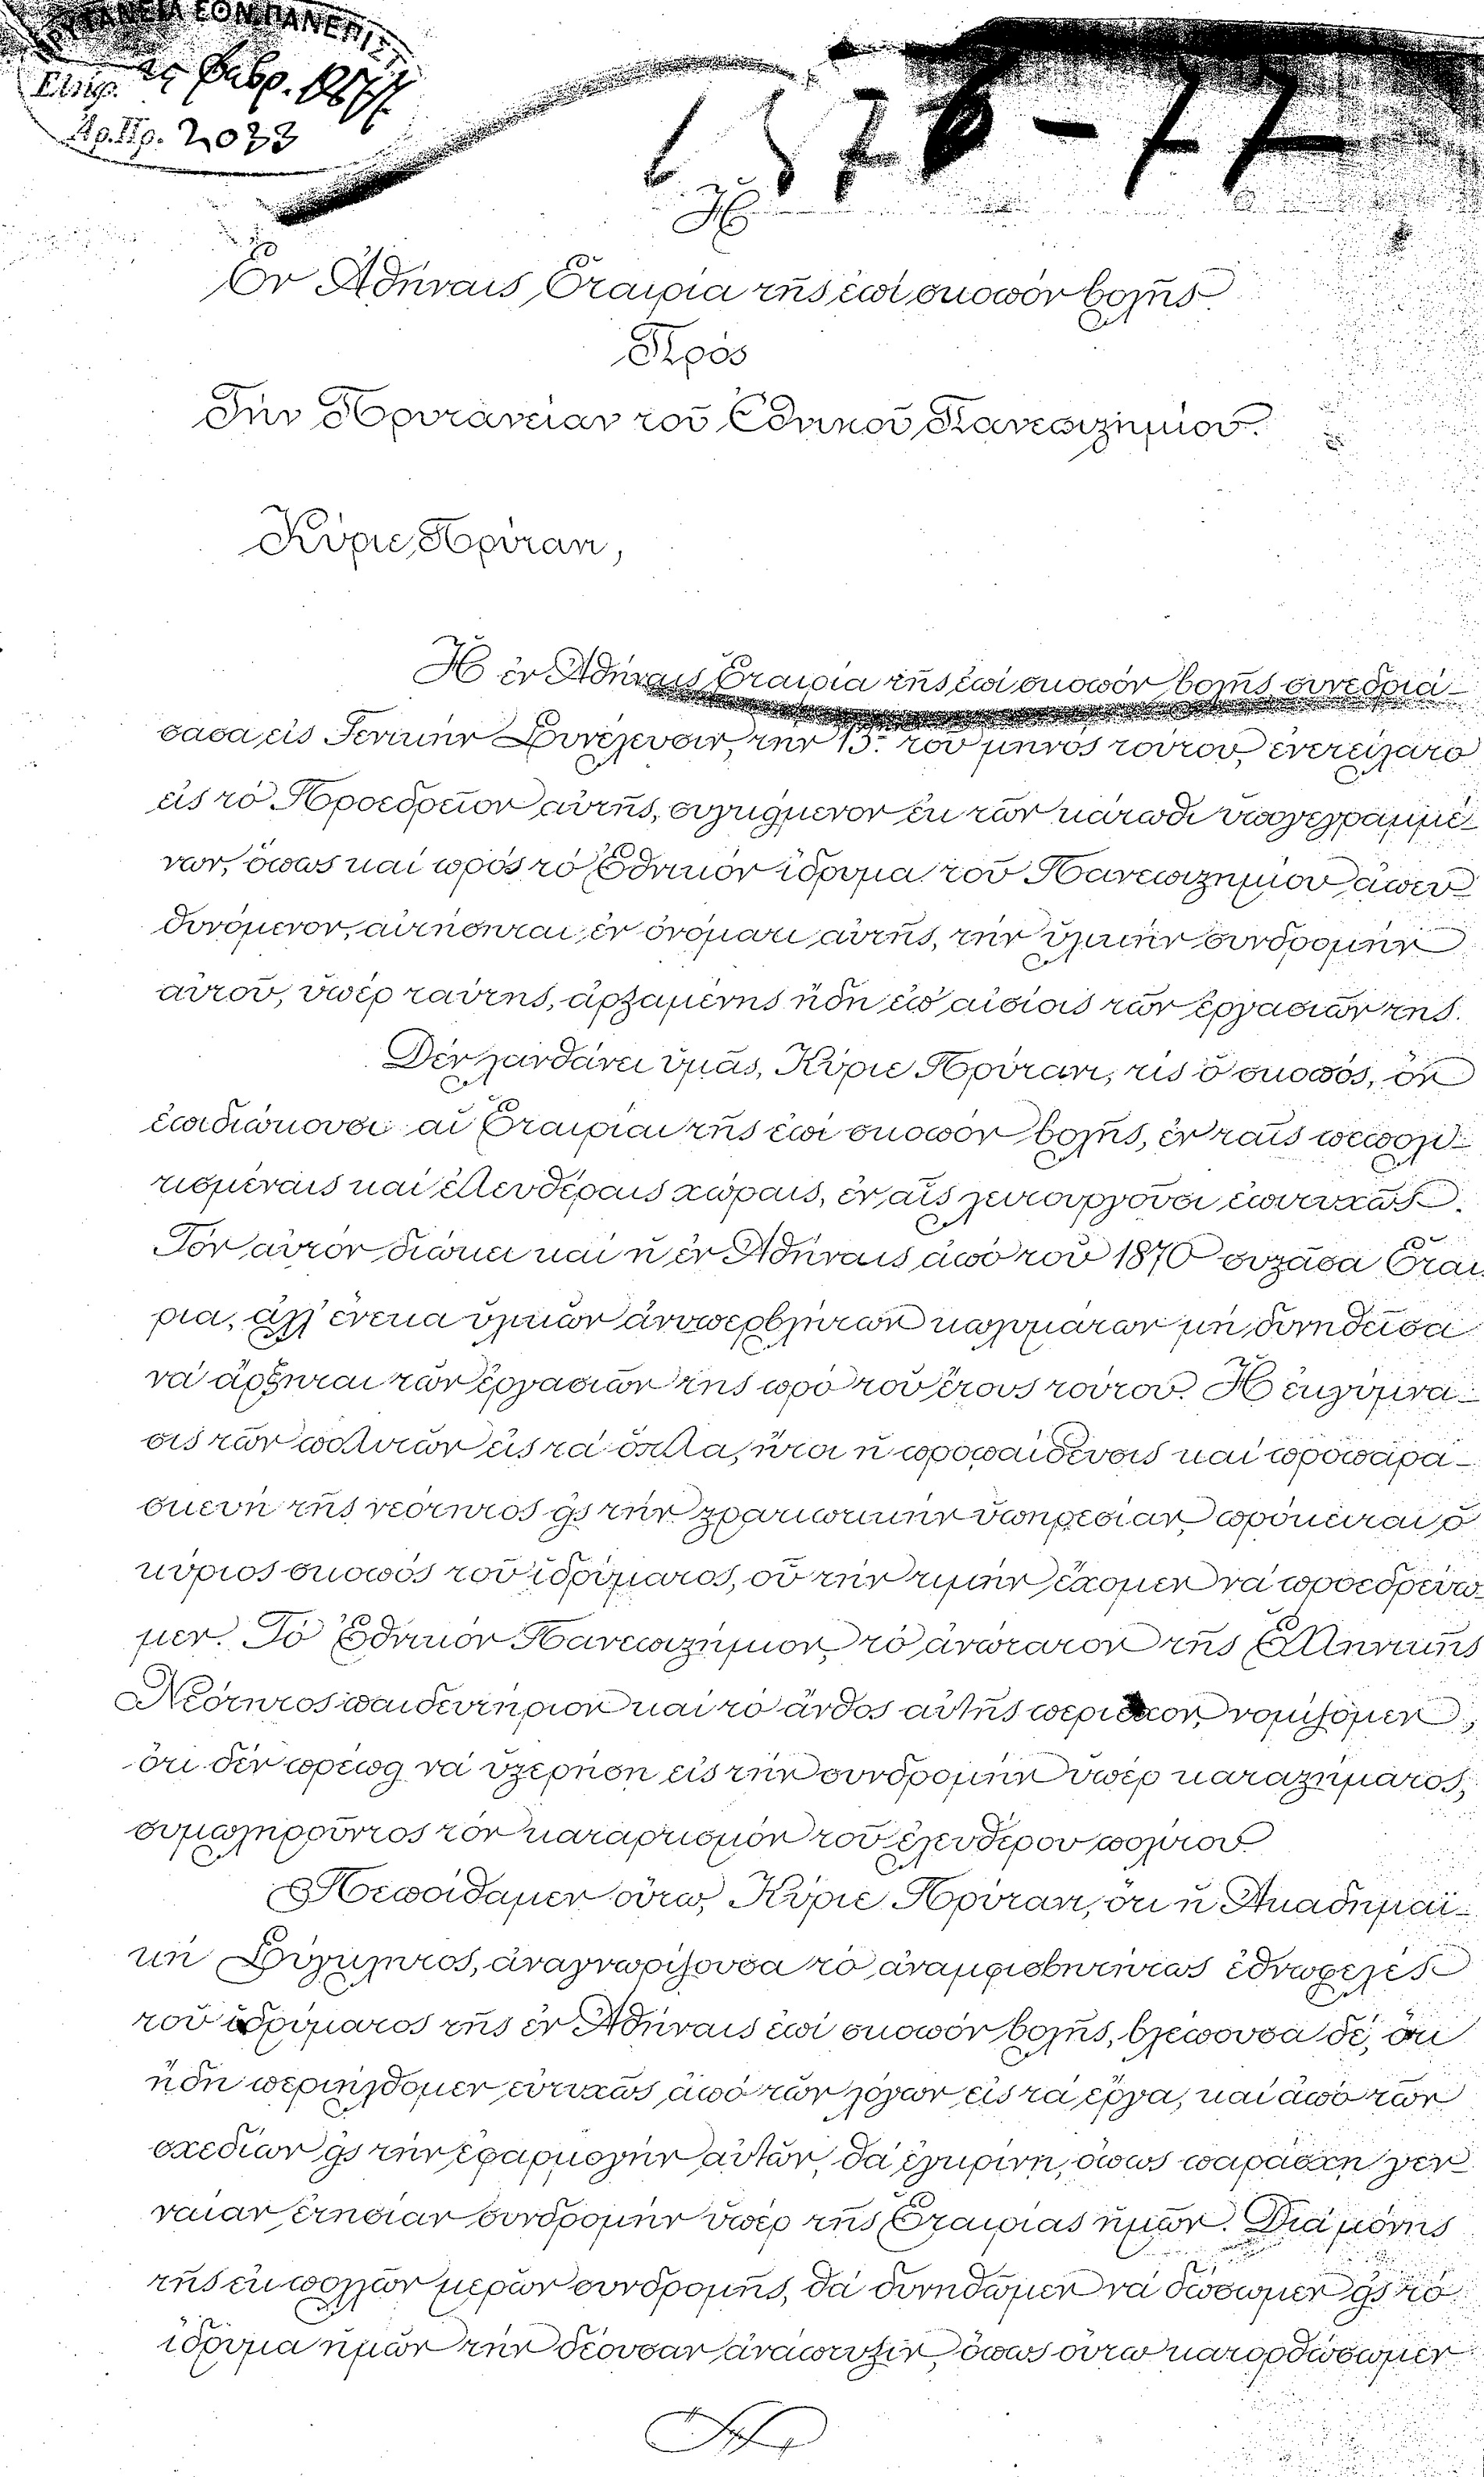 ΠΡΥΤΑΝΕΙΑ ΕΘΝ. ΠΑΝΕΠΙΣΤ.
Ἐλήφ. 25 Φεβρ. 1877
Ἀρ. Πρ. 2033
1876-77
Ἡ
Ἐν Ἀθήναις Ἑταιρία τῆς ἐπὶ σκοπὸν βολῆς
Πρὸς
Τὴν Πρυτάνειαν τοῦ Ἐθνικοῦ Πανεπιστημίου.
Κύριε Πρύτανι,
Ἡ ἐν Ἀθήναις Ἑταιρία τῆς ἐπὶ σκοπὸν βολῆς συνεδριά-
σασα εἰς Γενικὴν Συνέλευσιν, τὴν 13. τοῦ μηνὸς τούτου, ἐνετείλατο
εἰς τὸ Προεδρεῖον αὐτῆς, συγκείμενον ἐκ τῶν κάτωθι ὑπογεγραμμέ-
νων, ὅπως καὶ πρὸς τὸ Ἐθνικὸν ἵδρυμα τοῦ Πανεπιστημίου ἀπευ-
θυνόμενον, αἰτήσηται ἐν ὀνόματι αὐτῆς, τὴν ὑλικὴν συνδρομὴν
αὐτοῦ, ὑπὲρ ταύτης, ἀρξαμένης ἤδη ἐπ' αἰσίοις τῶν ἐργασιῶν της.
Δὲν λανθάνει ὑμᾶς, Κύριε Πρύτανι, τίς ὁ σκοπός, ὃν
ἐπιδιώκουσι αἱ Ἑταιρίαι τῆς ἐπὶ σκοπὸν βολῆς, ἐν ταῖς πεπολι-
τισμέναις καὶ ἐλευθέραις χώραις, ἐν αἷς λειτουργοῦσι ἐπιτυχῶς.
Τὸν αὐτὸν διώκει καὶ ἡ ἐν Ἀθήναις ἀπὸ τοῦ 1870 συστᾶσα Ἑται
ρία, ἀλλ' ἕνεκα ὑλικῶν ἀνυπερβλήτων κωλυμάτων μὴ δυνηθεῖσα
νὰ ἄρξηται τῶν ἐργασιῶν της πρὸ τοῦ ἔτους τούτου. Ἡ ἐκγύμνα-
σις τῶν πολιτῶν εἰς τὰ ὅπλα, ἤτοι ἡ προπαίδευσις καὶ προπαρα-
σκευὴ τῆς νεότητος εἰς τὴν στρατιωτικὴν ὑπηρεσίαν, πρόκειται ὁ
κύριος σκοπὸς τοῦ ἱδρύματος, οὗ τὴν τιμὴν ἔχομεν νὰ προεδρεύω-
μεν. Τὸ Ἐθνικὸν Πανεπιστήμιον, τὸ ἀνώτατον τῆς Ἑλληνικῆς
Νεότητος παιδευτήριον καὶ τὸ ἄνθος αὐτῆς περιέχον, νομίζομεν,
ὅτι δὲν πρέπει νὰ ὑστερήσῃ εἰς τὴν συνδρομὴν ὑπὲρ καταστήματος,
συμπληροῦντος τὸν καταρτισμὸν τοῦ ἐλευθέρου πολίτου
Πεποίθαμεν οὕτω, Κύριε Πρύτανι, ὅτι ἡ Ἀκαδημαϊ-
κὴ Σύγκλητος, ἀναγνωρίζουσα τὸ ἀναμφισβητήτως ἐθνωφελὲς
τοῦ ἱδρύματος τῆς ἐν Ἀθήναις ἐπὶ σκοπὸν βολῆς, βλέπουσα δέ, ὅτι
ἤδη περιήλθομεν εὐτυχῶς ἀπὸ τῶν λόγων εἰς τὰ ἔργα, καὶ ἀπὸ τῶν
σχεδίων εἰς τὴν ἐφαρμογὴν αὐτῶν, θὰ ἐγκρίνῃ, ὅπως παράσχῃ γεν
ναίαν ἐτησίαν συνδρομὴν ὑπὲρ τῆς Ἑταιρίας ἡμῶν. Διὰ μόνης
τῆς ἐκ πολλῶν μερῶν συνδρομῆς, θὰ δυνηθῶμεν νὰ δώσωμεν εἰς τὸ
ἵδρυμα ἡμῶν τὴν δέουσαν ἀνάπτυξιν, ὅπως οὕτω κατορθώσωμεν